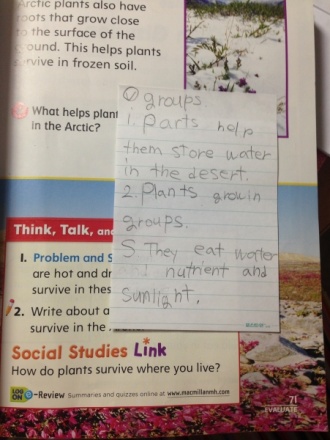 Arctic plants also have
roots that grow close
to the surface of the
ground. This helps plants
survive in frozen soil.
What helps plant
in the Arctic?
groups
1. Parts help
them store water
in the desert.
2. Plants grow in
groups.
S They eat water
nutrient and
sunlight.
Think, Talk, and
1. Problem and S
are hot and dr
survive in thes
2. Write about a
survive in the
Social Studies Link
How do plants survive where you live?
LOG ON e-Review Summaries and quizzes online at www.macmillanmh.com
71
EVALUATE